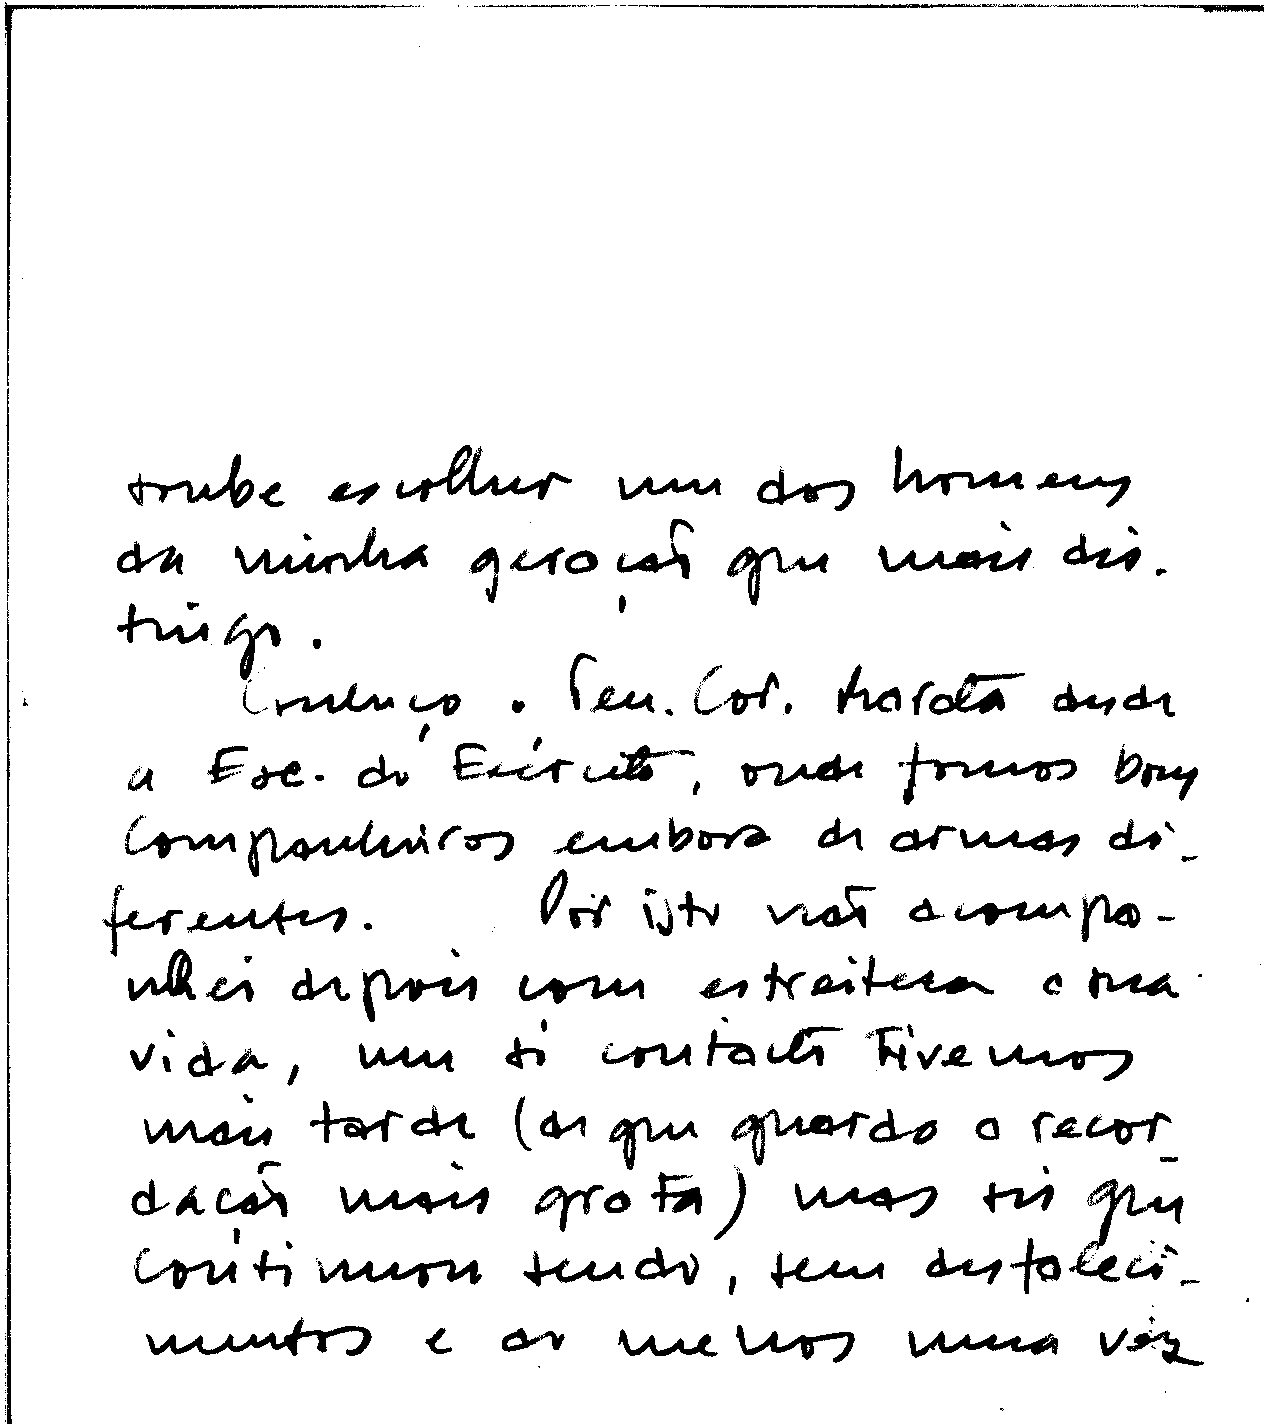 soube escolher um dos homens
da minha geração que mais dis-
tingo.
Conheço o Ten. Cor. desde
a Esc. do Exército, onde fomos bons
companheiros embora de armas di-
ferentes. Por isto não acompa-
nhei depois com estreiteza a sua
vida, um só contacto tivemos
mais tarde (de que guardo a recor-
dação mais grata) mas sei que
continuou sendo, sem desfaleci-
mentos e ao menos uma vez